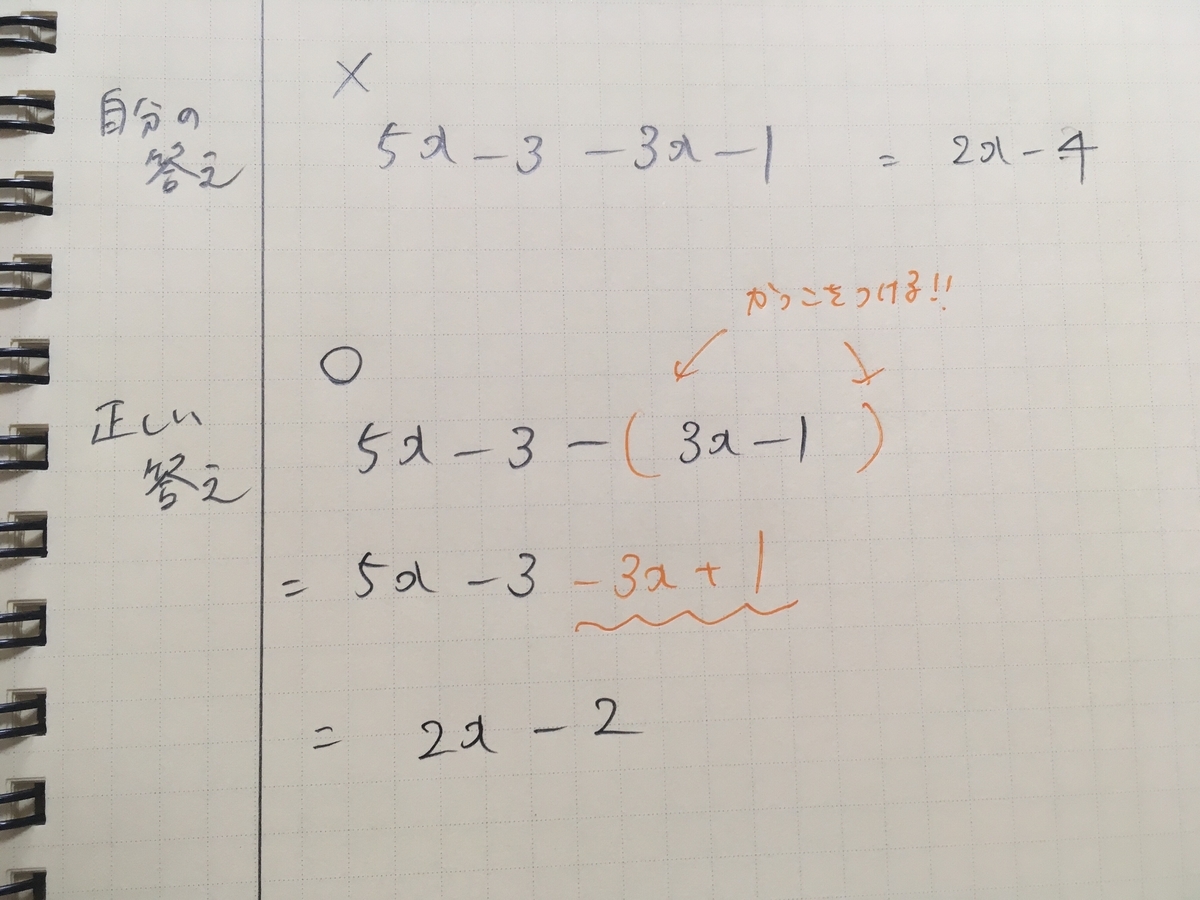 ×
自分の
答え
5x - 3 - 3x - 1 = 2x - 4
かっこをつける!!
○
正しい
答え
5x - 3 - ( 3x - 1 )
= 5x - 3 - 3x + 1
= 2x - 2